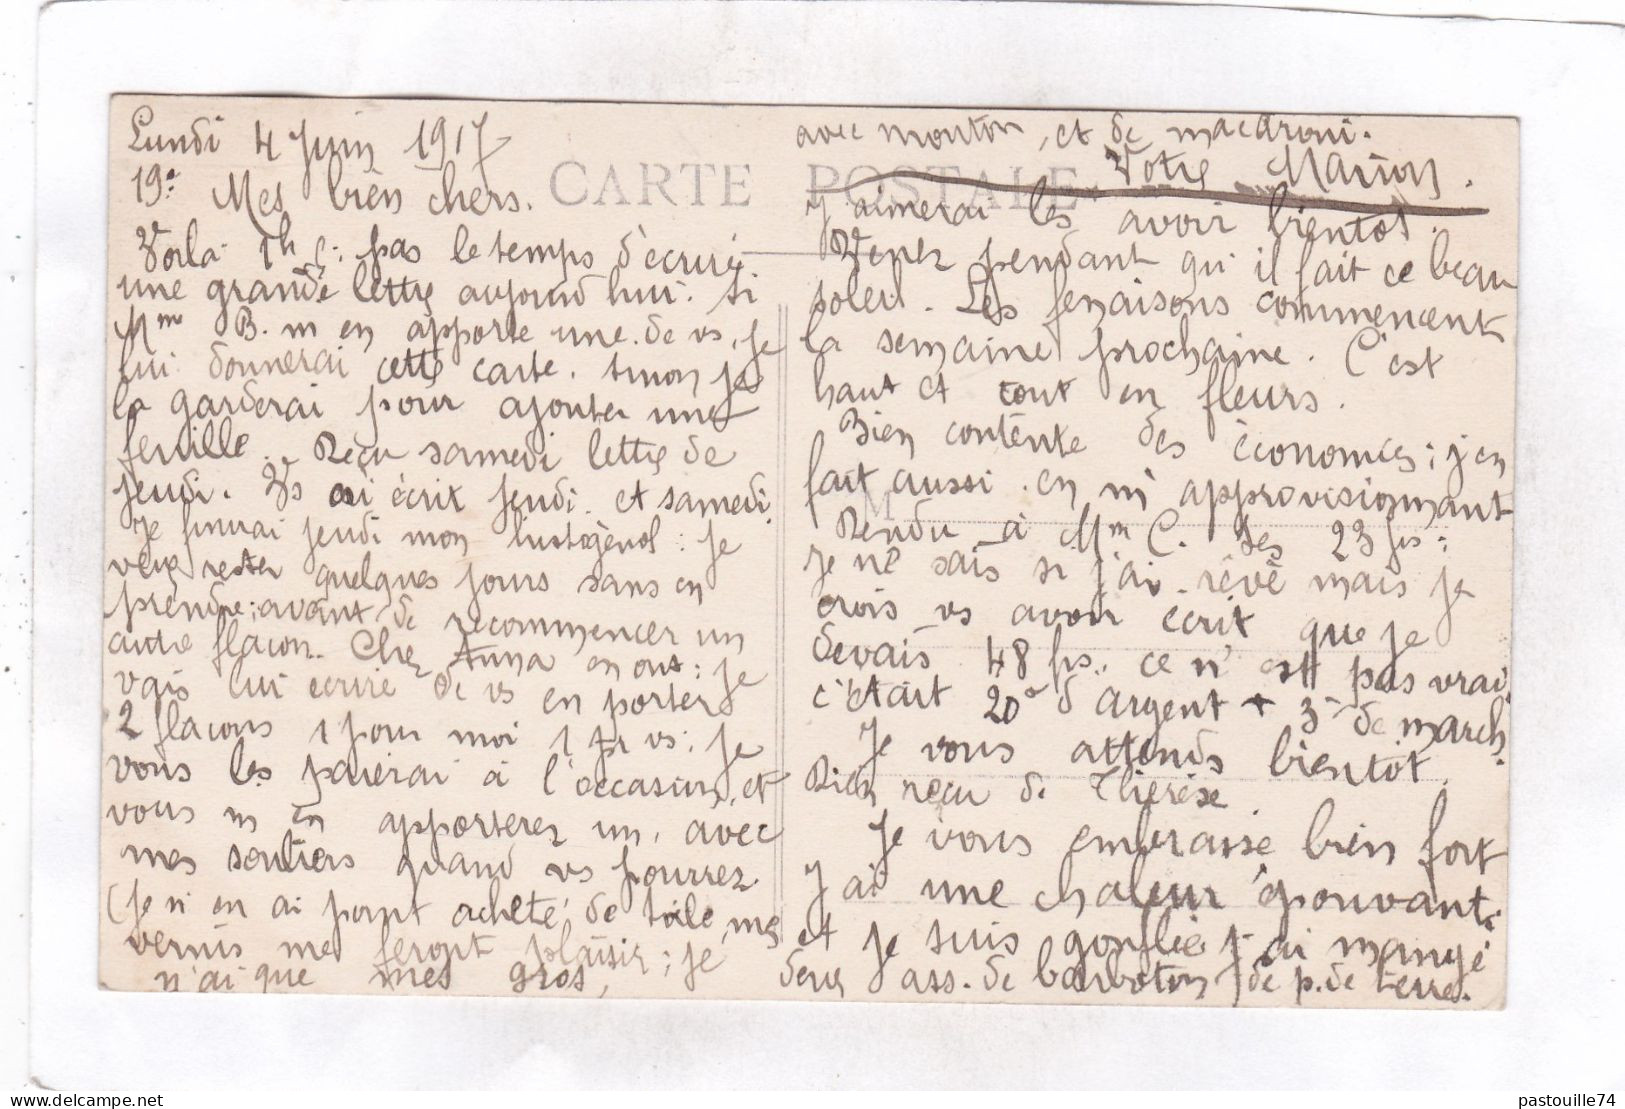 Lundi 4 Juin 1917
19e. Mes bien chers.
CARTE POSTALE
Voilà 1h ¼: pas le temps d'écrire
une grande lettre aujourd'hui. Si
Mme B. m'en apporte une de vs, je
lui donnerai cette carte. Sinon je
la garderai pour ajouter une
feuille. Reçu samedi lettre de
jeudi. Vs ai écrit jeudi et samedi.
Je finirai jeudi mon histogénol: je
veux rester quelques jours sans en
prendre; avant de recommencer un
autre flacon. Chez Anna en ont: je
vais lui écrire de vs en porter
2 flacons 1 pour moi 1 pr vs; je
vous les paierai à l'occasion, et
vous m'en apporterez un, avec
mes souliers quand vs pourrez.
(je n'en ai point acheté, de toile, mes
vernis me feront plaisir; je
n'ai que mes gros,
J'aimerai les avoir bientôt.
Venez pendant qu'il fait ce beau
soleil. Les fenaisons commencent
la semaine prochaine. C'est
haut et tout en fleurs.
Bien contente des économies; j'en
fait aussi en m'approvisionnant
Rendu à Mme C. les 23 frs;
je ne sais si j'ai rêvé mais je
crois vs avoir écrit que je
devais 48 frs. ce n'est pas vrai
c'était 20 d'argent + 3 de march.
Je vous attends bientôt.
Rien reçu de Thérèse.
Je vous embrasse bien fort
J'ai une chaleur épouvant.
et je suis gonflée j'ai mangé
deux ass. de barboton de p. de terre.
avec mouton, et de macaroni.
Votre Marion.
delcampe.net
pastouille74